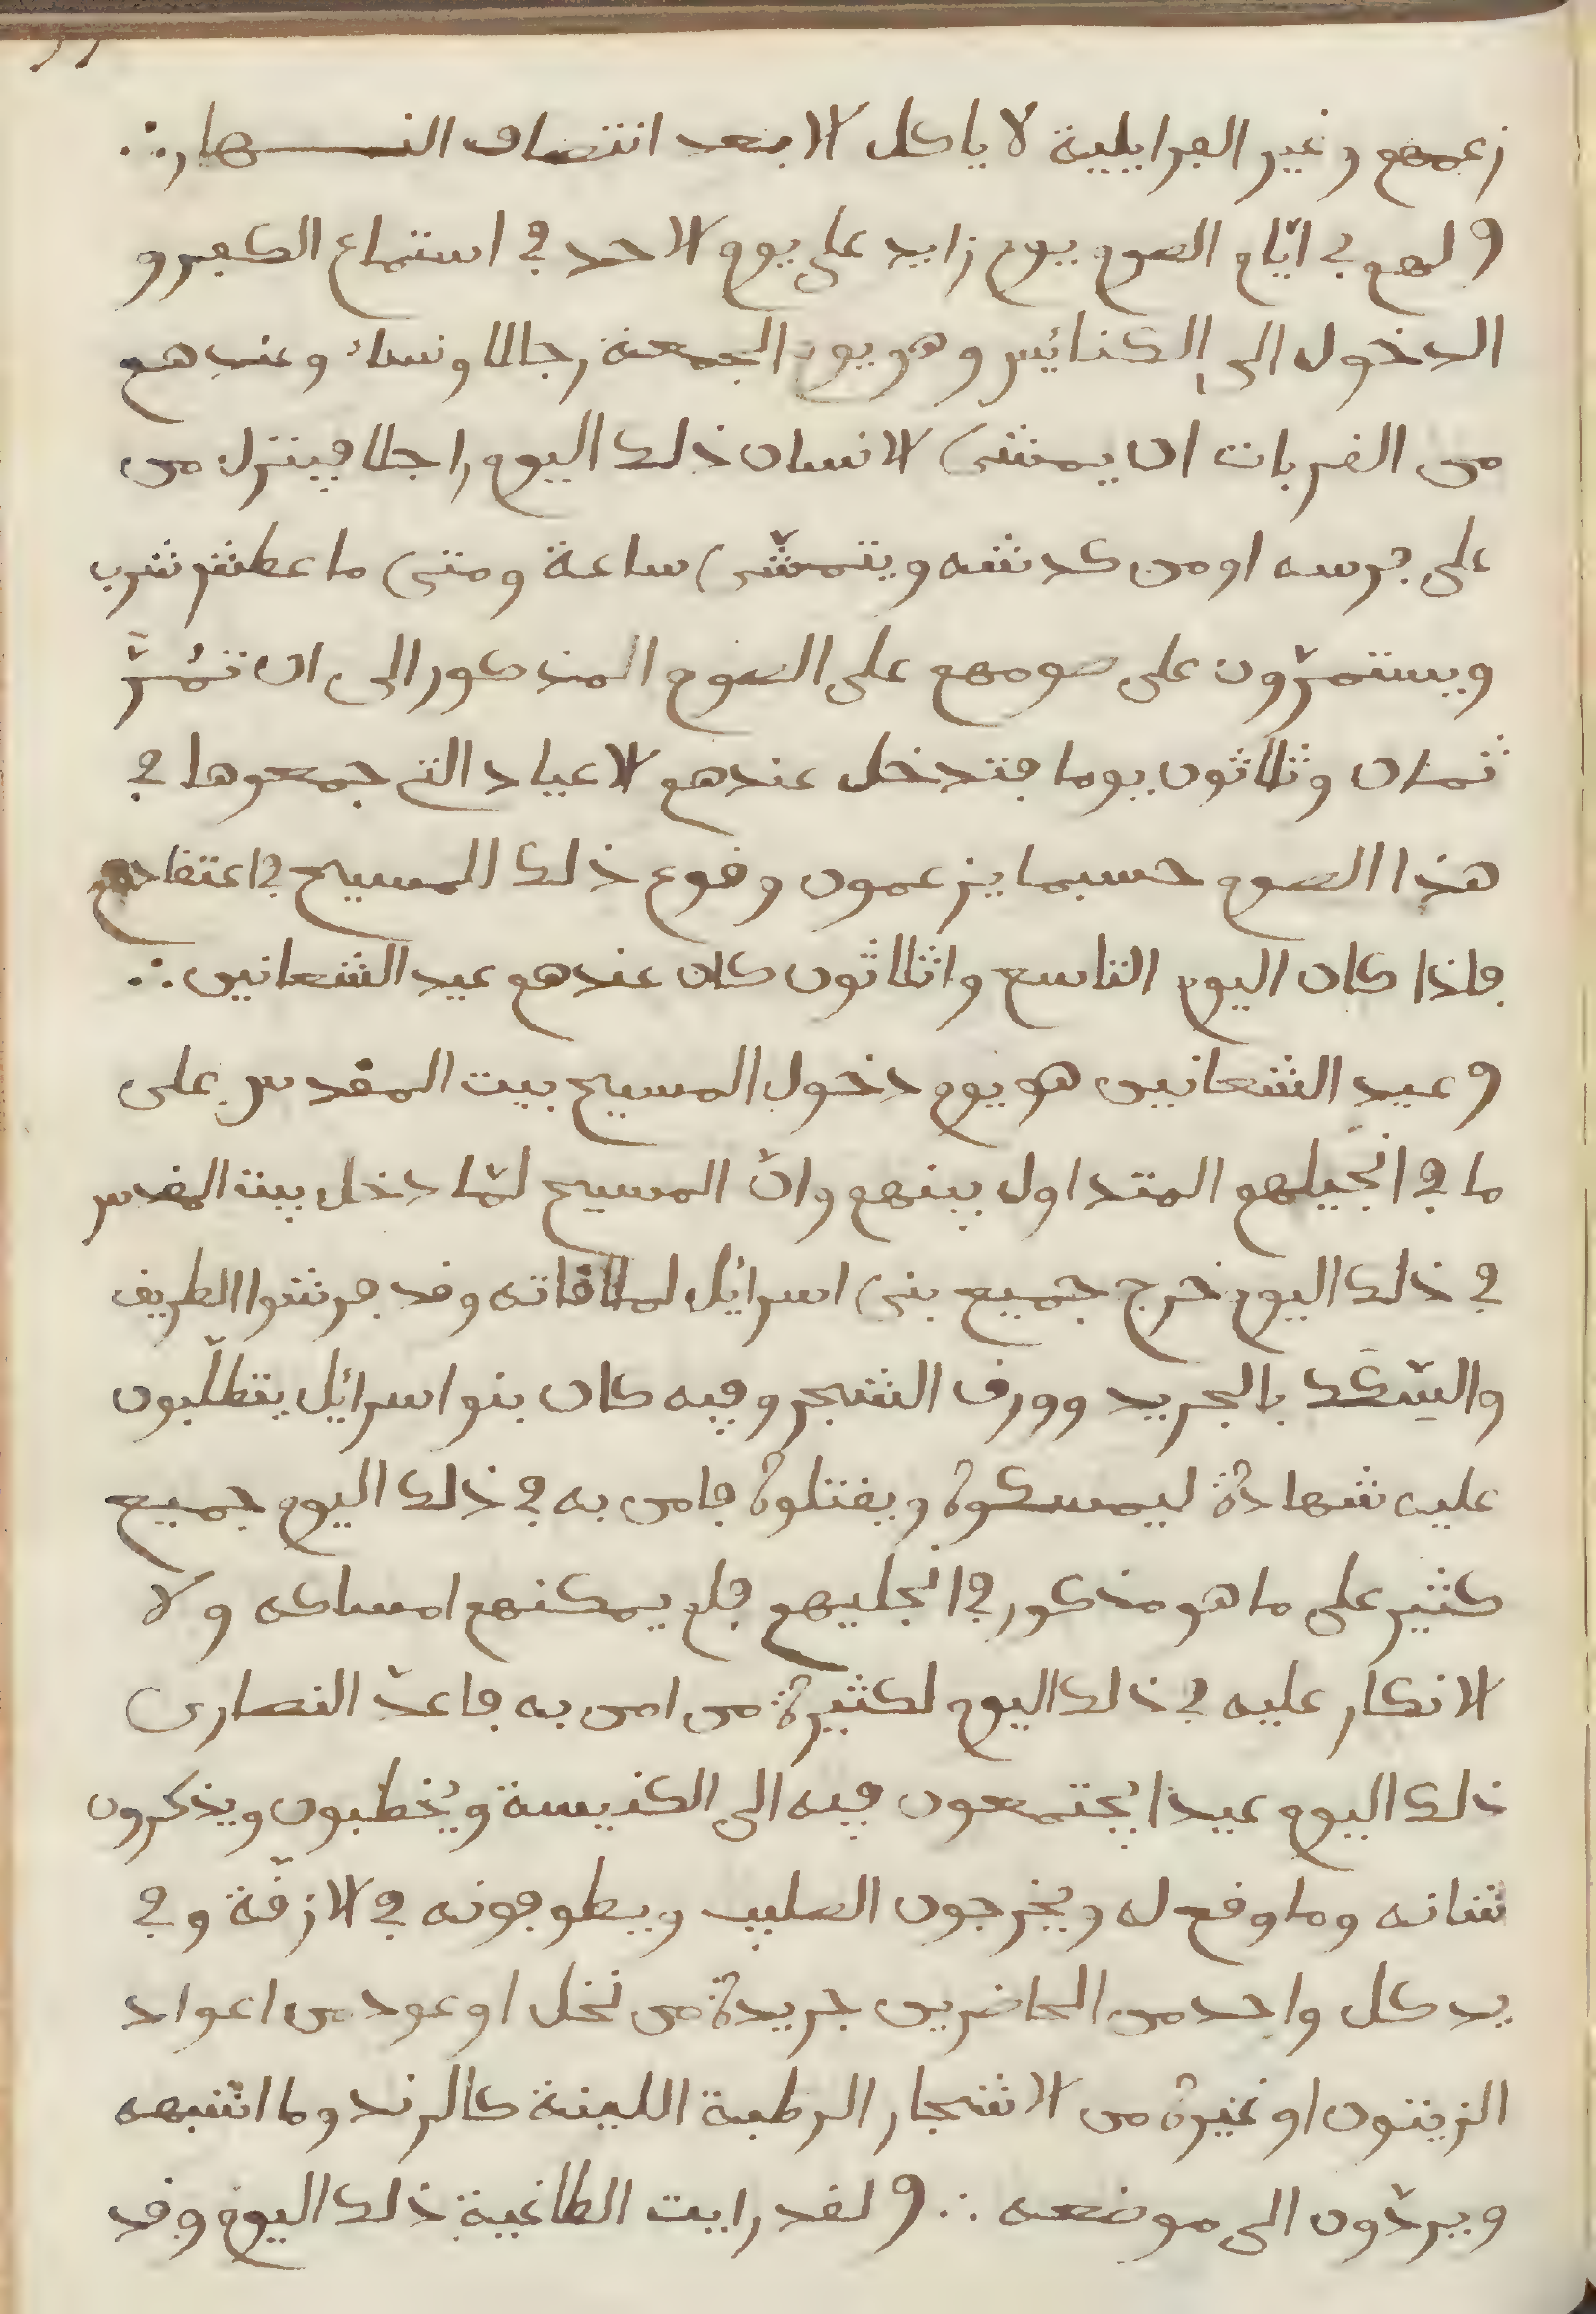 زعمهم وغير الفرايلية لا ياكل الا بعد انتصاف النهار ∴
ولهم في ايّام الصوم يوم زايد على يوم الاحد في استماع الكفر و
الدخول الى الكنائيس وهو يوم الجمعة رجالا ونساء وعندهم
من القربات ان يمشى الانسان ذلك اليوم راجلا فينزل من
على فرسه او من كدشه ويتمشّى ساعة ومتى ما عطش شرب
ويستمرّون على صومهم على الصوم المذكور الى ان تمُرّ
ثمان وثلاثون يوما فتدخل عندهم الاعياد التى جمعوها في
هذا الصوم حسبما يزعمون وقوع ذلك المسيح في اعتقادهم
فاذا كان اليوم التاسع واثلاثون كان عندهم عيد الشعانين ∴
وعيد الشعانين هو يوم دخول المسيح بيت المقدس على
ما في انجيلهم المتداول بينهم وانّ المسيح لمّا دخل بيت المقدس
في ذلك اليوم خرج جميع بنى اسرائيل لملاقاته وقد فرشوا الطريق
والسّكك بالجريد وورق الشجر وفيه كان بنو اسرائيل يتطلّبون
عليه شهادة ليمسكوه ويقتلوه فامن به في ذلك اليوم جميع
كثير على ما هو مذكور في انجليهم فلم يمكنهم امساكه ولا
الانكار عليه في ذلك اليوم لكثيرة من امن به فاعدّ النصارى
ذلك اليوم عيدا يجتمعون فيه الى الكنيسة ويخطبون ويذكرون
شانه وما وقع له ويخرجون الصليب ويطوفونه في الازقّة وفي
يد كل واحد من الحاضرين جريدة من نخل او عود من اعواد
الزيتون او غيره من الاشجار الرطبة اللينة كالرند وما اشبهه
ويردّون الى موضعه ∴ ولقد رايت الطاغية ذلك اليوم وقد